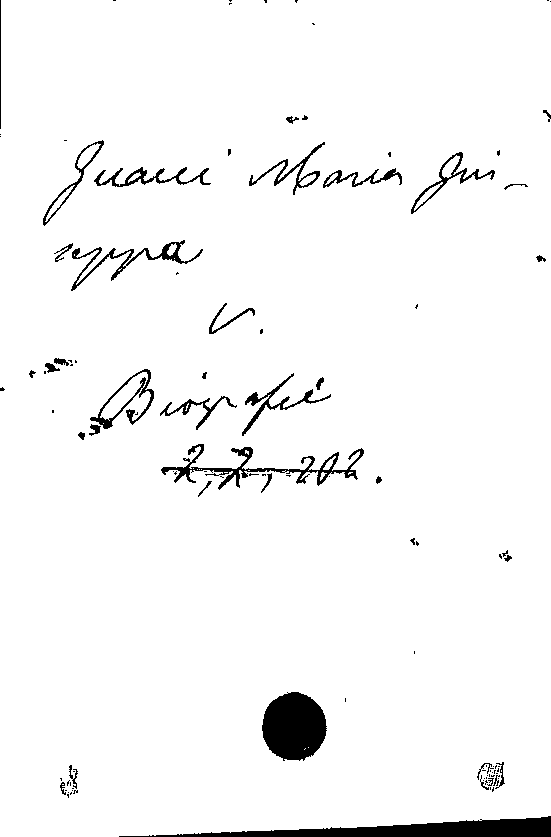 Guacci Maria Giu-
seppa
V.
Biografie
2, 2, 202.